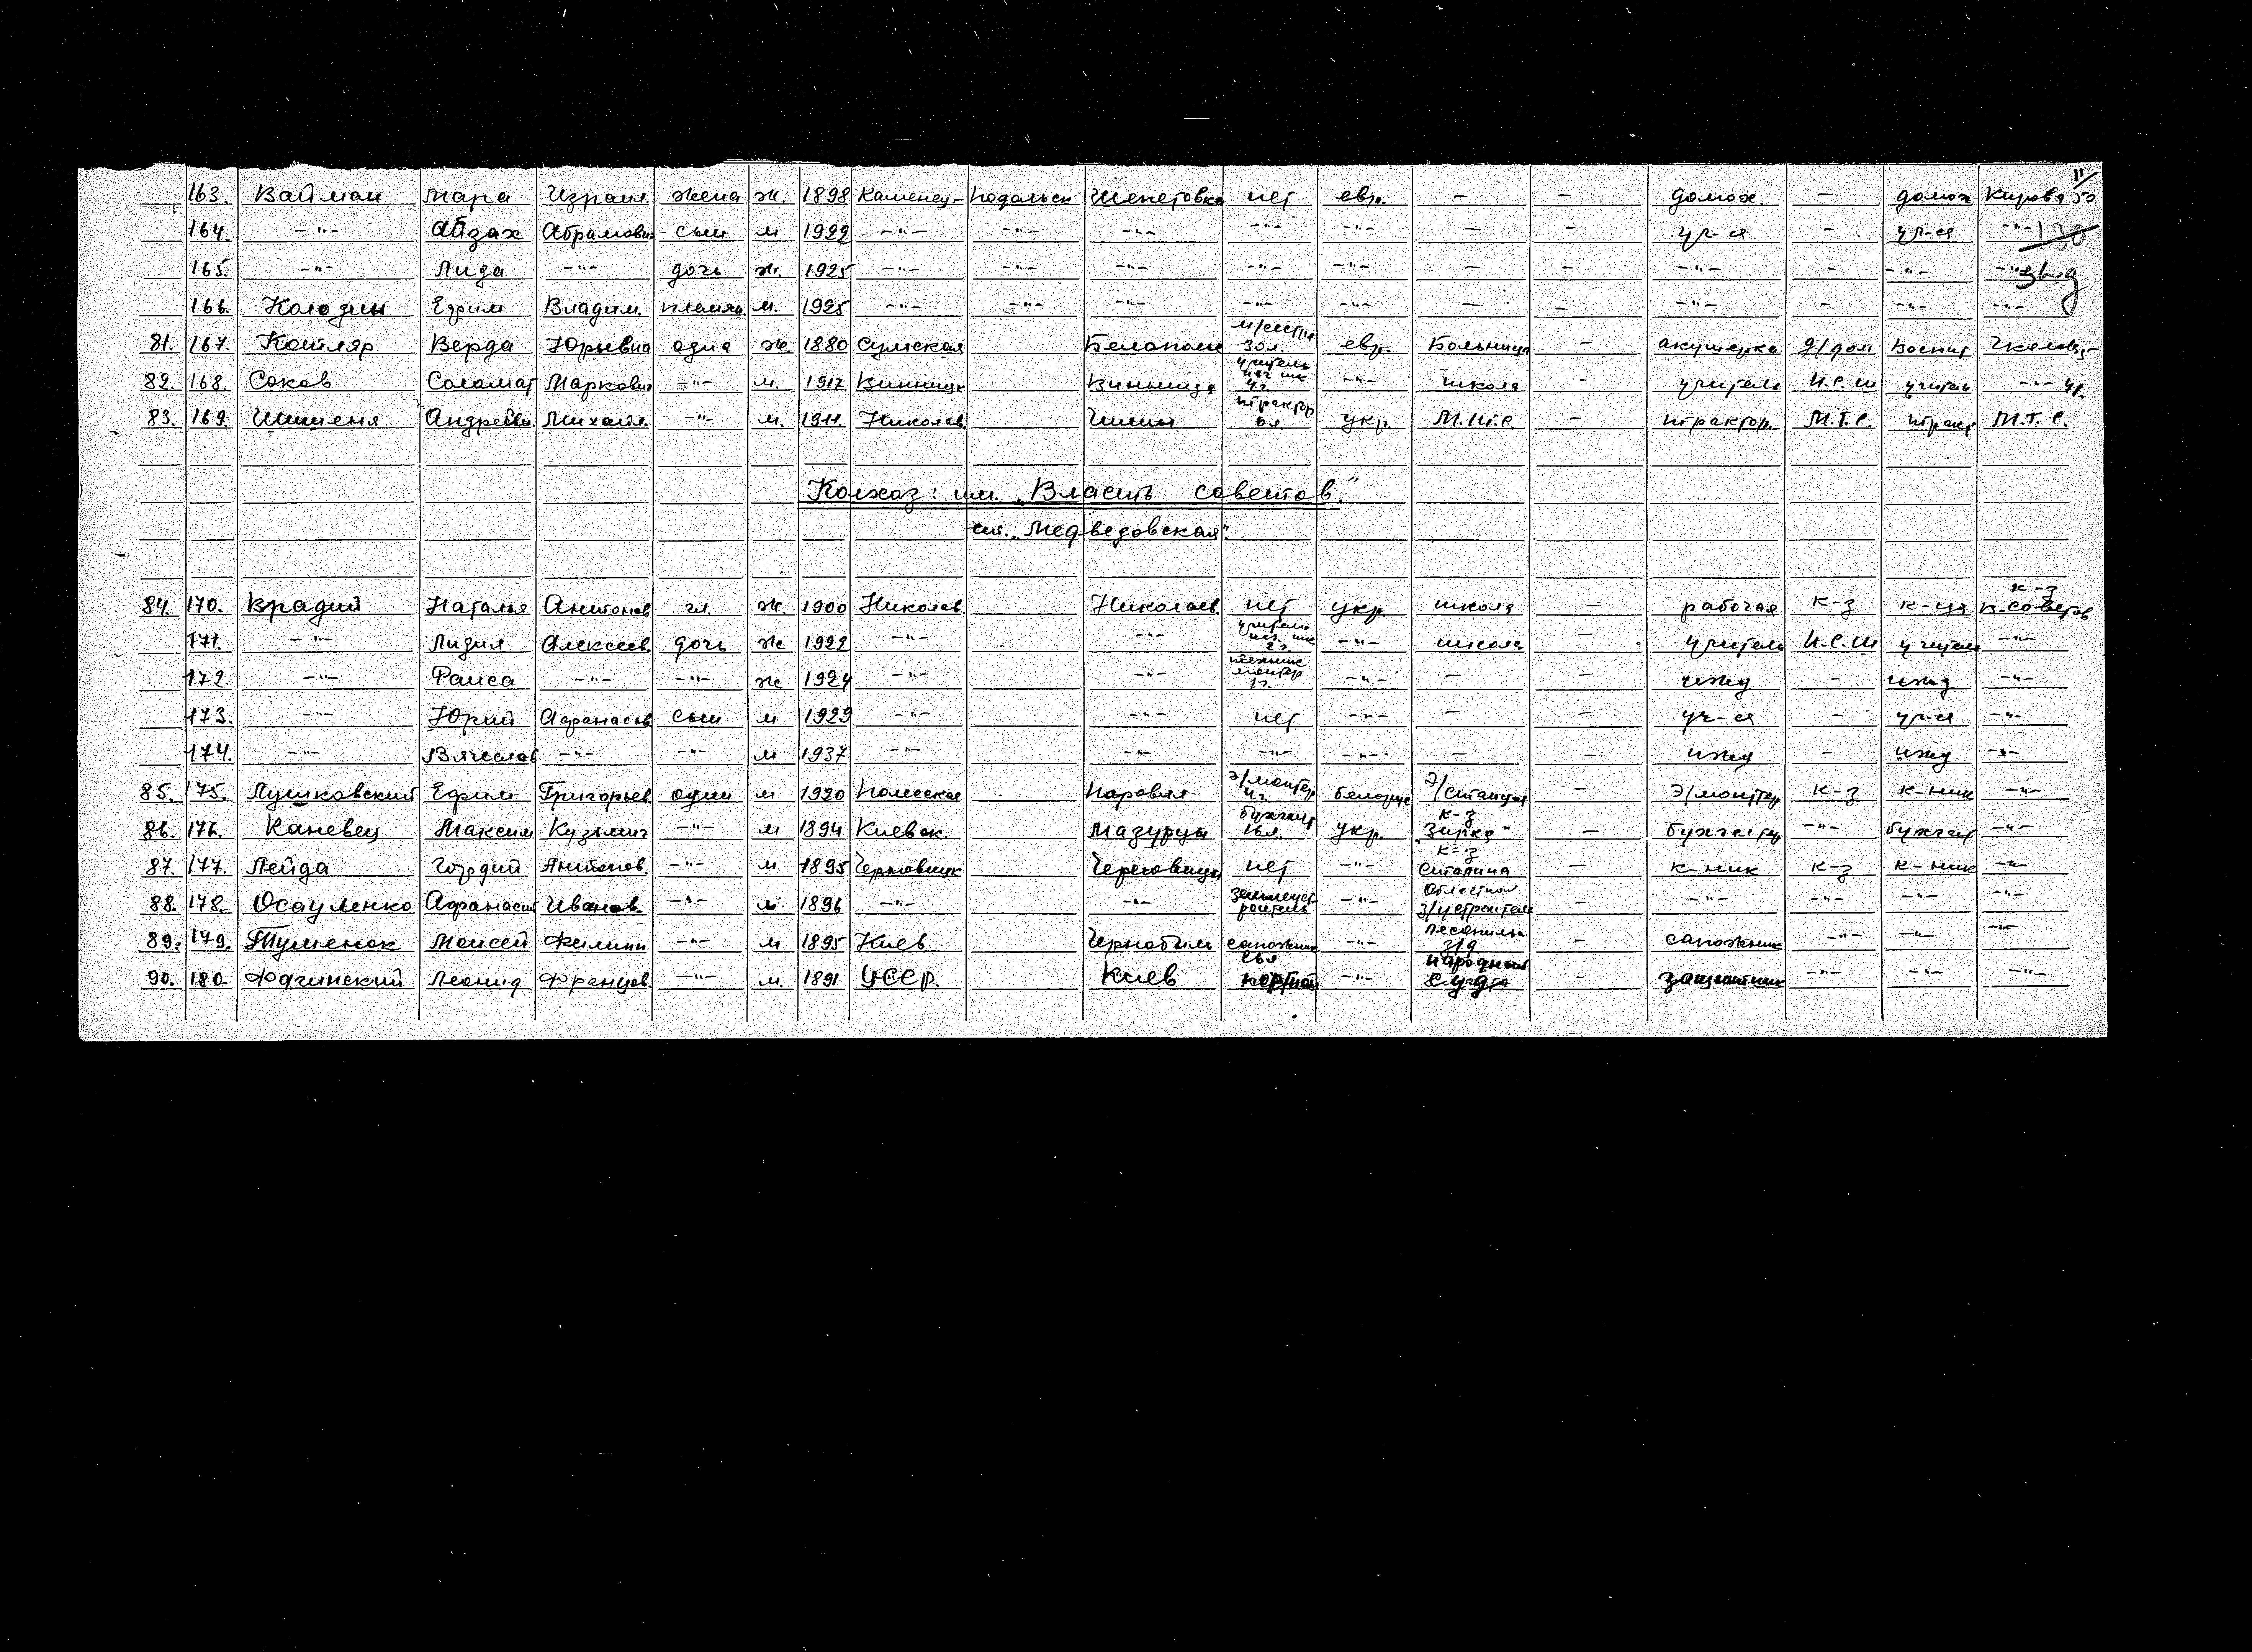 11/
163. Вайман Мара Израил. жена ж. 1898 Каменец- Подольск Шепетовка нет евр. – – домох. – домох Кирова 50
164. -"- Айзах Абрамович сын м 1922 -"- -"- -"- -"- -"- – – уч-ся – уч-ся -"- 130
165. -"- Лида -"- дочь ж. 1925 -"- -"- -"- -"- -"- – – -"- – -"- -"-
166. Ефим Владим. племян. м. 1925 -"- -"- -"- -"- -"- – – -"- – -"- -"-
81. 167. Котляр Верда Юрьевна одна ж. 1880 Сумская Белополье м/сестра 30 л. евр. Больница – акушерка д/дом Воспит
82. 168. Соков Соломат Маркович -"- м. 1917 Винницк Винница учитель нач шк 4 г. -"- школа – учитель Н.С.Ш учитель -"- 41.
83. 169. Шишеня Андрей Михайл. -"- м. 1911. Николаев. трактор 6 л укр. М.Т.С. – трактор. М.Т.С. тракт М.Т.С.
Колхоз: им. "Власть советов."
ст. "Медведовская".
84. 170. Врадий Наталья Антонов гл. ж. 1900 Николаев. Николаев. нет укр. школа – рабочая к-з к-ца к-з В-советов
171. -"- Лидия Алексеев. дочь ж 1922 -"- -"- учитель нач. шк 2 г. -"- школа – учитель Н.С.Ш учитель -"-
172. -"- Раиса -"- -"- ж 1924 -"- -"- техник монтер 1 г. -"- – – ижд – ижд -"-
173. -"- Юрий Афанасьев сын м 1929 -"- -"- нет -"- – – уч-ся – уч-ся -"-
174. -"- Вячеслав -"- -"- м 1937 -"- -"- -"- -"- – – ижд – ижд -"-
85. 175. Лушковский Ефим Григорьев. один м 1920 Полесская Наровля э/монтер 4 г. белорус э/станция – э/монтер к-з к-ник -"-
86. 176. Каневец Максим Кузьмич -"- м 1894 Киевск. Мазурцы бухгалт 16 л. укр. к-з "Зирка" – бухгалтер -"- бухгалт -"-
87. 177. Лейда Гордий Антонов. -"- м 1895 нет -"- к-з Сталина – к-ник к-з к-ник -"-
88. 178. Осауленко Афанасий Иванов. -"- м 1896 -"- -"- землеуст роитель -"- Областной з/устроитель – -"- -"- -"- -"-
89. 179. Тушенок Моисей Филипп -"- м 1895 Киев Чернобыль сапожник -"- – сапожник -"- -"- -"-
90. 180. Леонид Францов. -"- м. 1891 УССР. Киев -"- народный Суд – защитник -"- -"- -"-